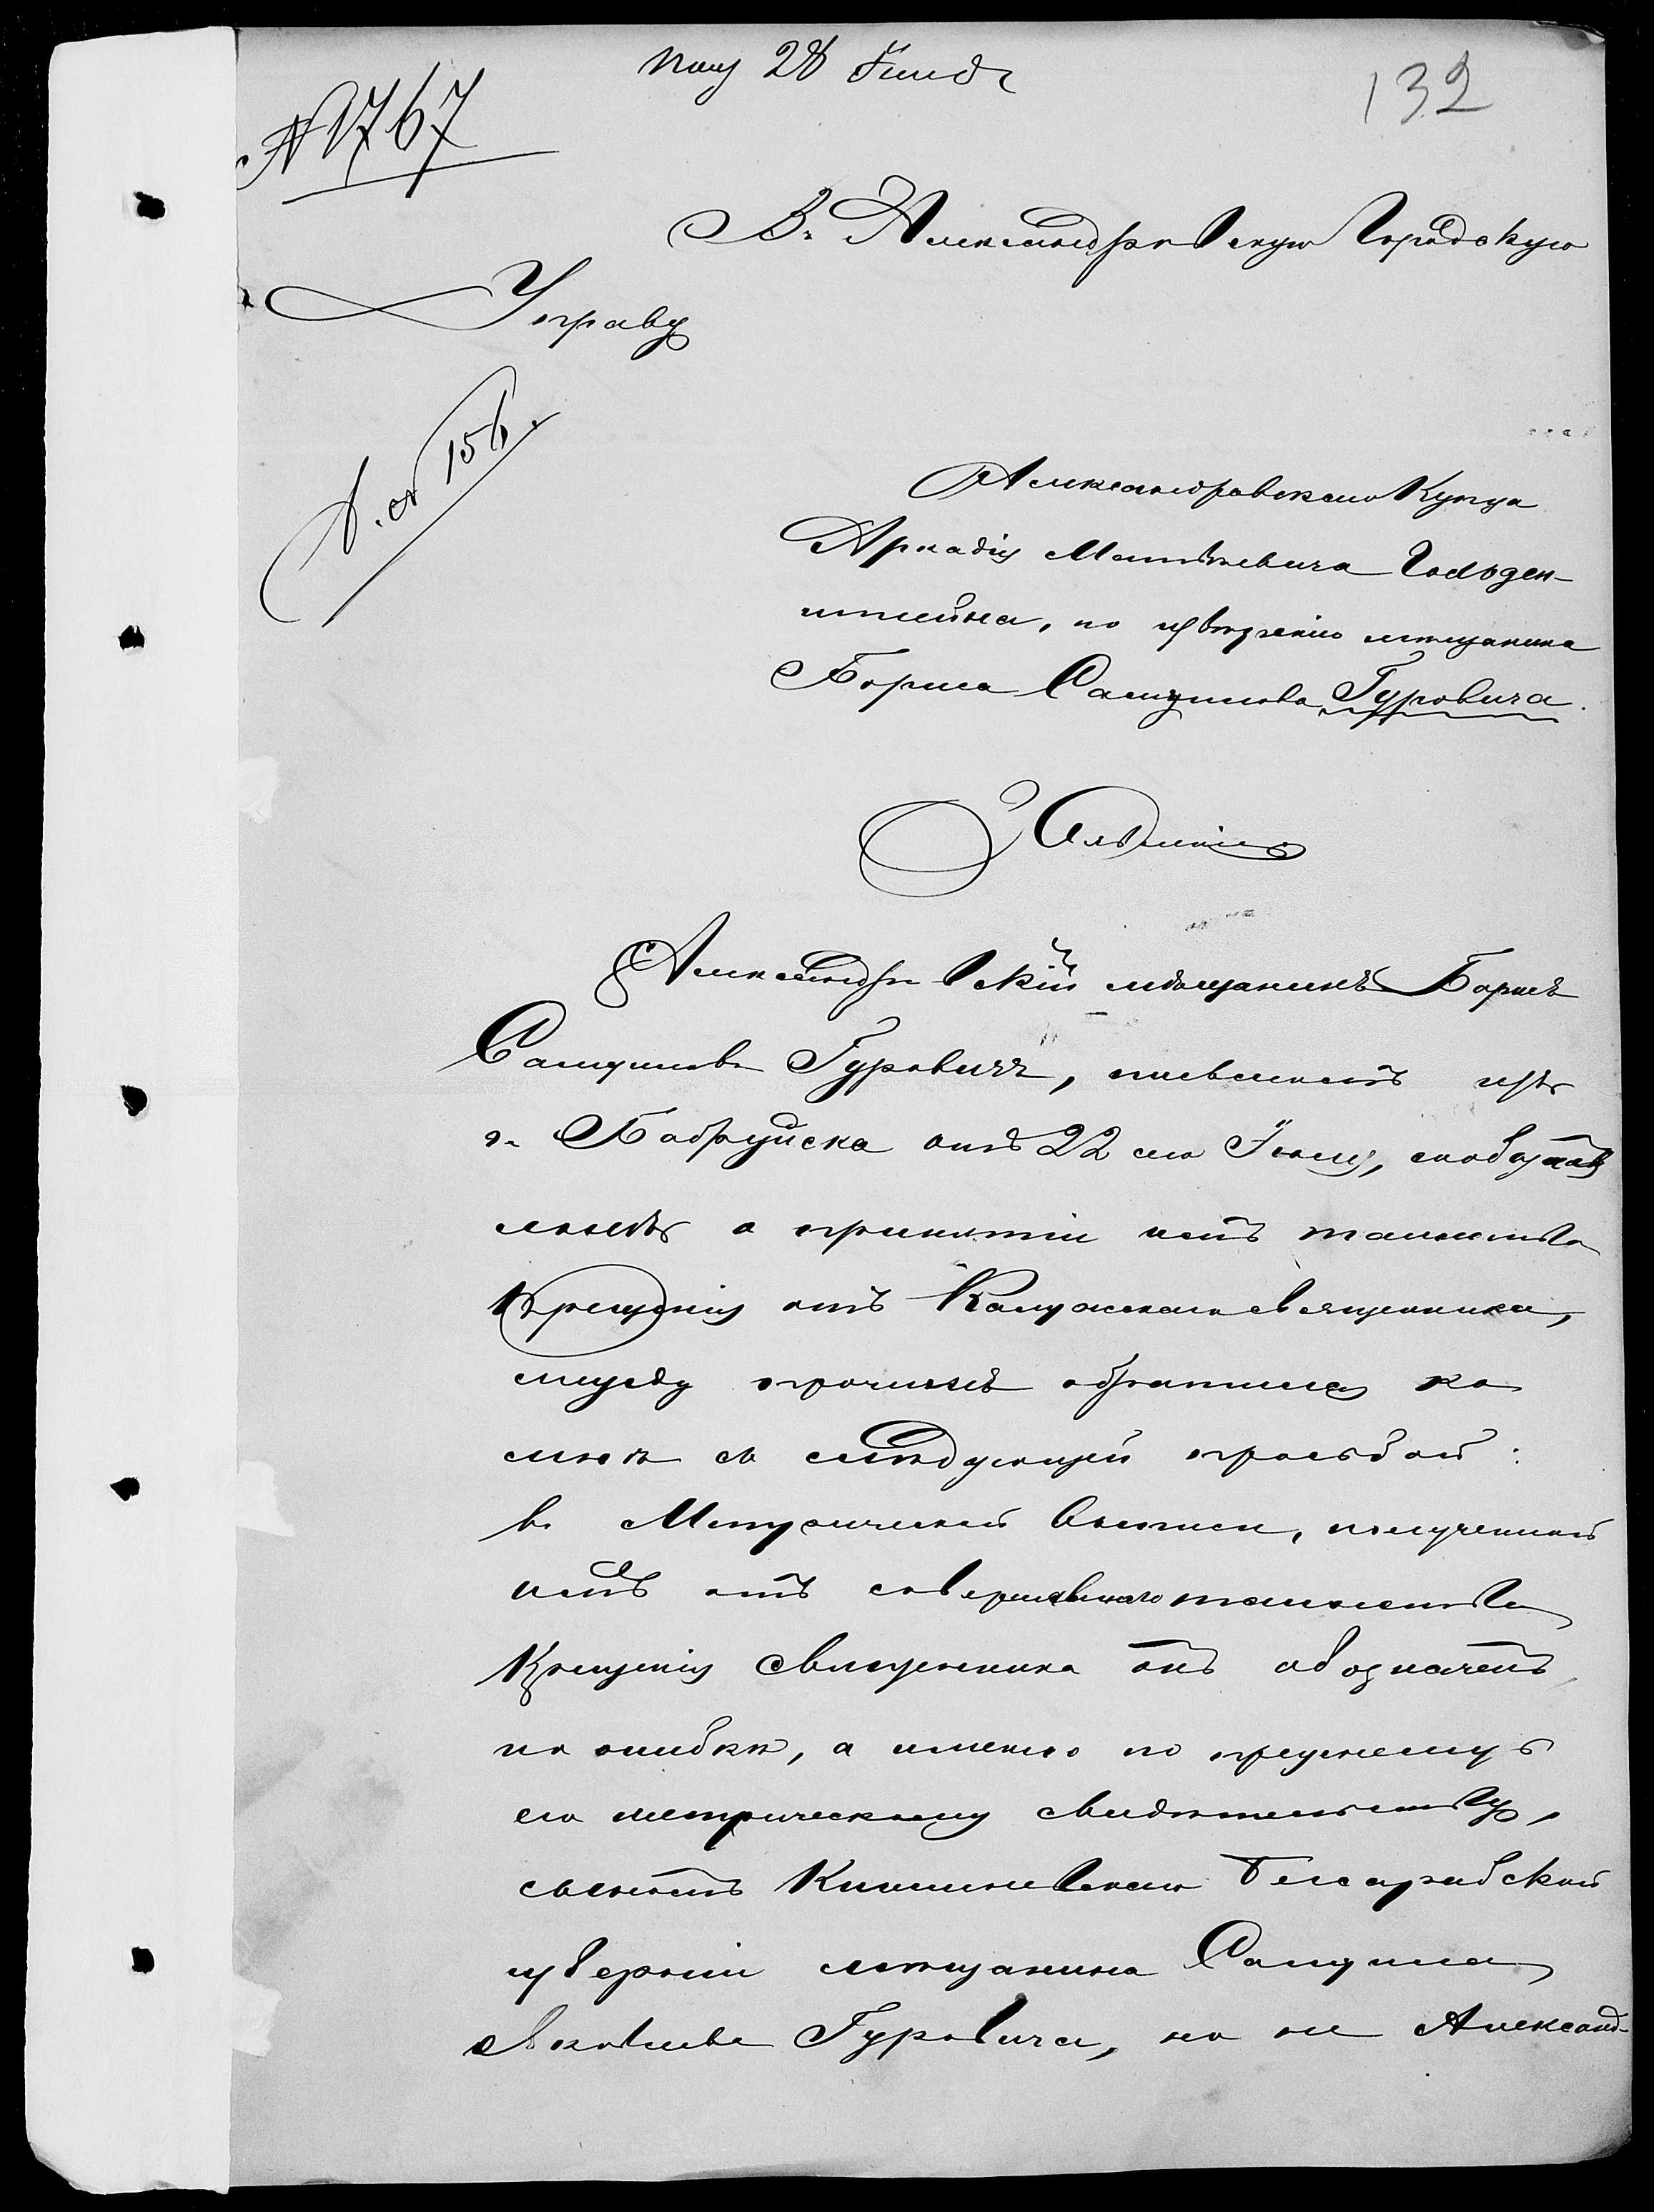 Пол 28 Іюля
132
№ 1767
Въ Александровскую Городскую
Управу
Александровскаго Купца
Аркадія Матвѣевича Гольден-
штейна, по довѣрію мѣщанина
Бориса Самуилова Гуровича.
Заявленіе
Александровскій мѣщанинъ Борисъ
Самуиловъ Гуровичъ, письмомъ изъ
г. Бобруйска отъ 22 сего Іюля, сообщая
мнѣ о принятіи имъ таинства
Крещенія отъ Калужскаго священника,
между прочимъ обратился ко
мнѣ съ слѣдующей просьбой:
въ Метрической выписи, полученной
имъ отъ совершившаго таинство
Крещенія священника онъ обозначенъ
по ошибкѣ, а именно по прежнему
его метрическому свидѣтельству,
сыномъ Кишиневскаго Бессарабской
губерніи мѣщанина Самуила
Яковлева Гуровича, но не Александ-